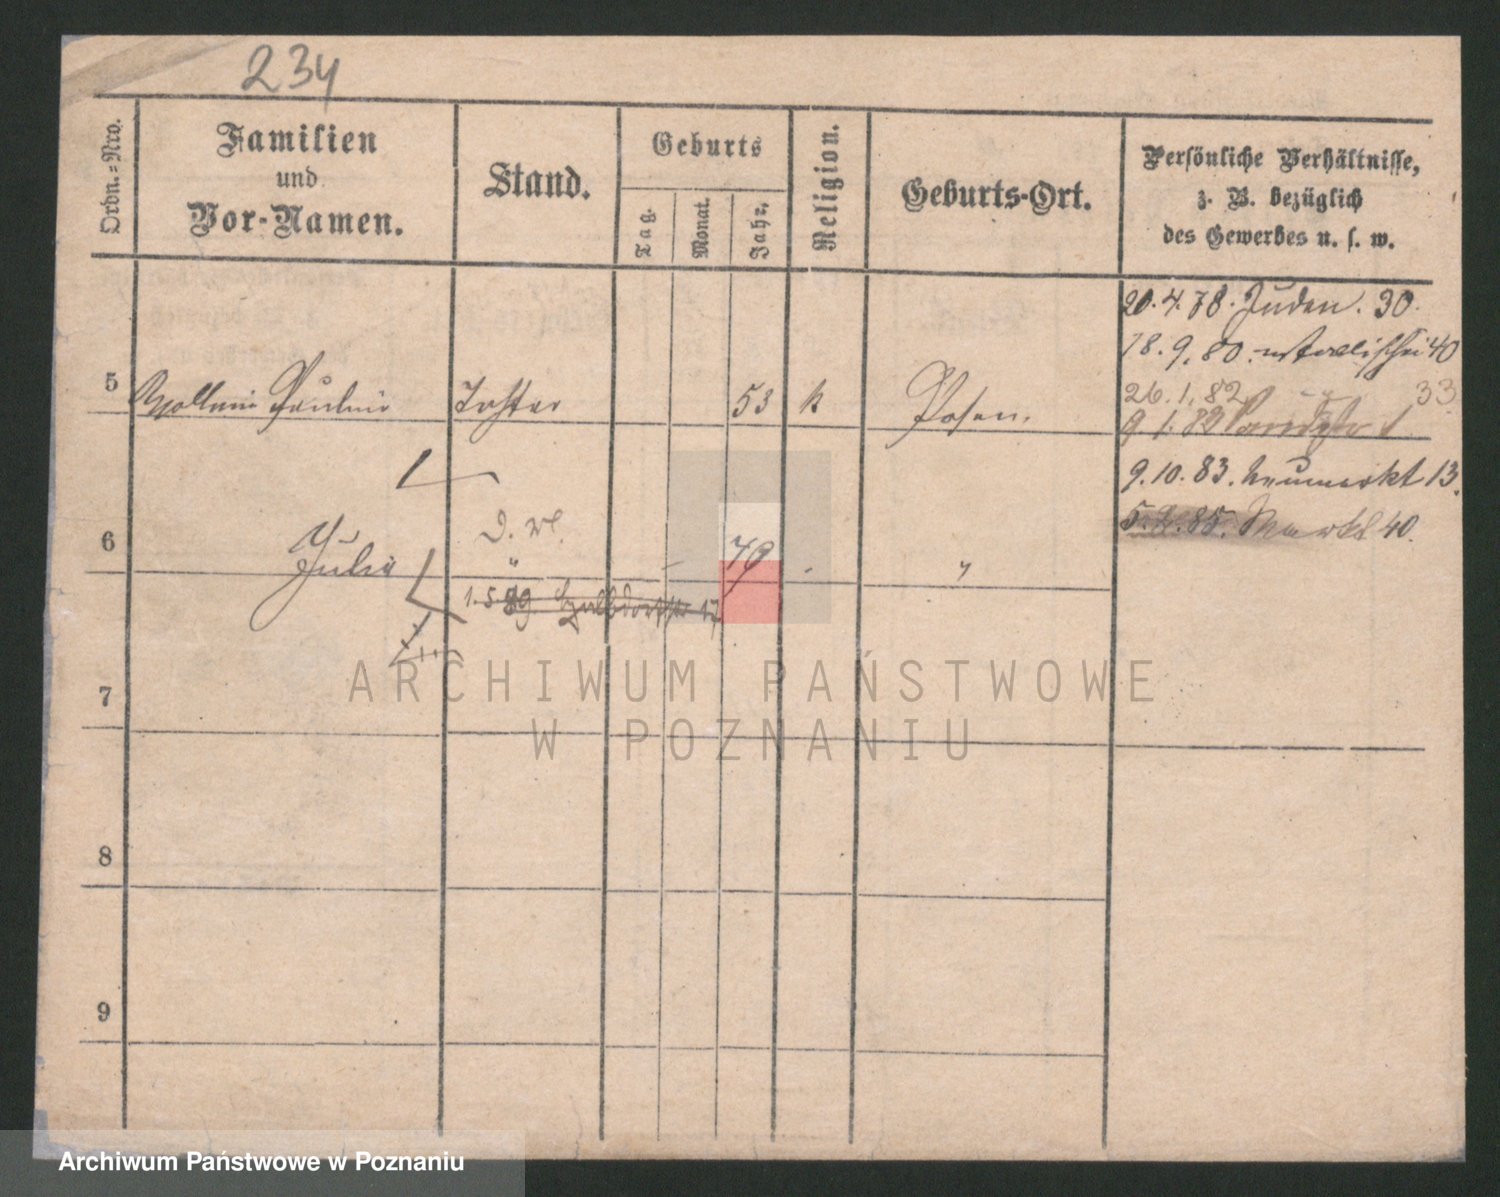 234
Ordn.=Nro.
Familien
und
Vor-Namen.
Stand.
Geburts
Tag.
Monat.
Jahr.
Religion.
Geburts-Ort.
Persönliche Verhältnisse,
z. B. bezüglich
des Gewerbes u. s. w.
20.4.78. Juden. 30.
18.9.80. 40
5 Pauline Tochter 53 k Posen.
26.1.82 33
9.1.82
9.10.83. Neumarkt 13.
5.4.85. Markt 40.
6 Julie 79 "
"
1.5.89. 17
7
8
9
ARCHIWUM PAŃSTWOWE
W POZNANIU
Archiwum Państwowe w Poznaniu